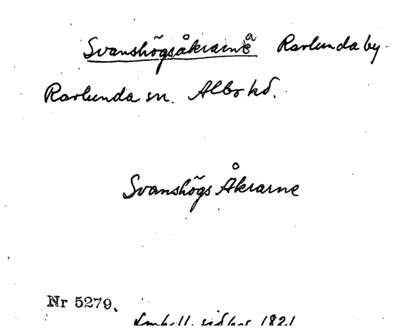 Svanshögsåkrarna Ravlunda by.
Ravlunda sn. Albo hd.
Svanshögs Åkrarne
Nr 5279.
1821